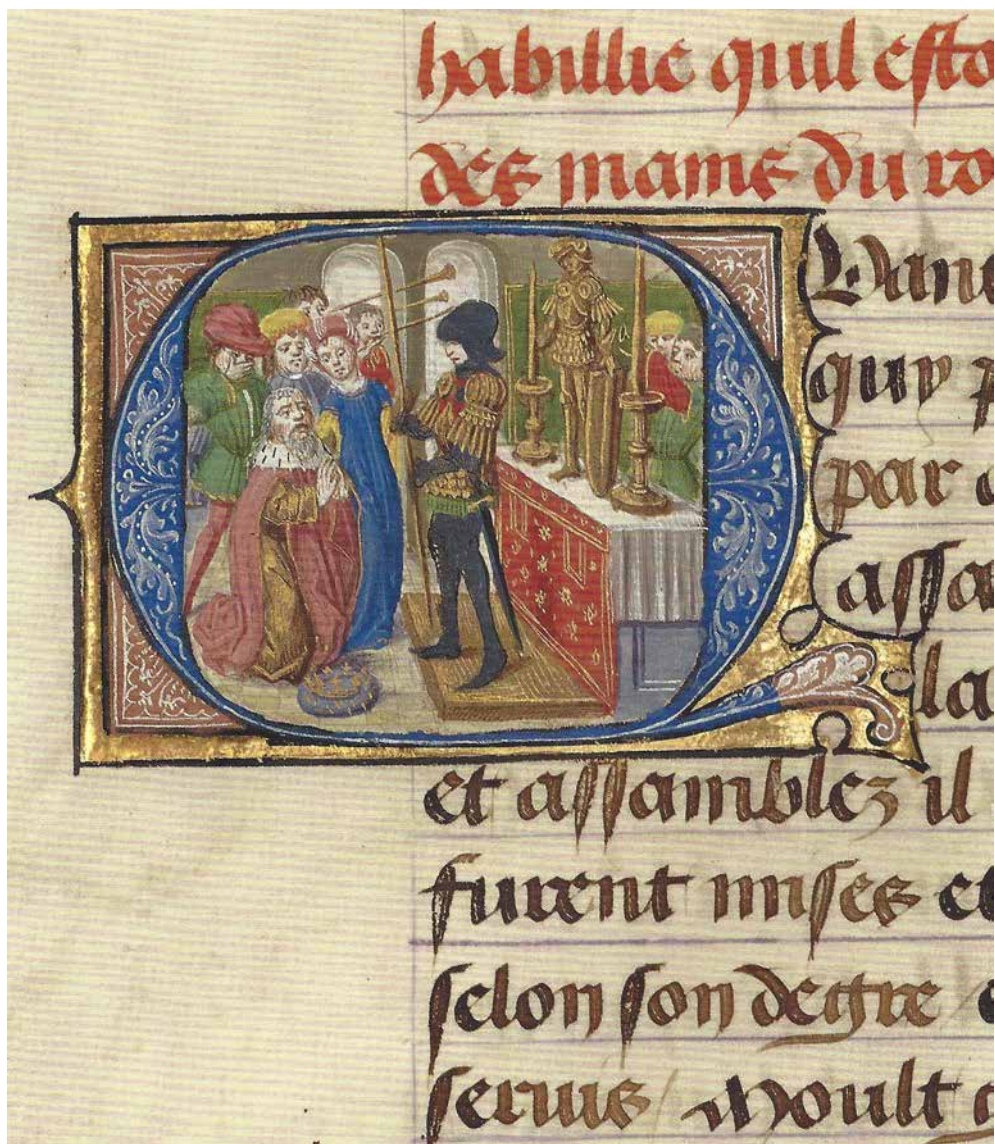 habillie quil esto
des mains du ro
Quant
quy p
par
assa
la
et assamblez il
furent mises et
selon son degre /
seruis / Moult